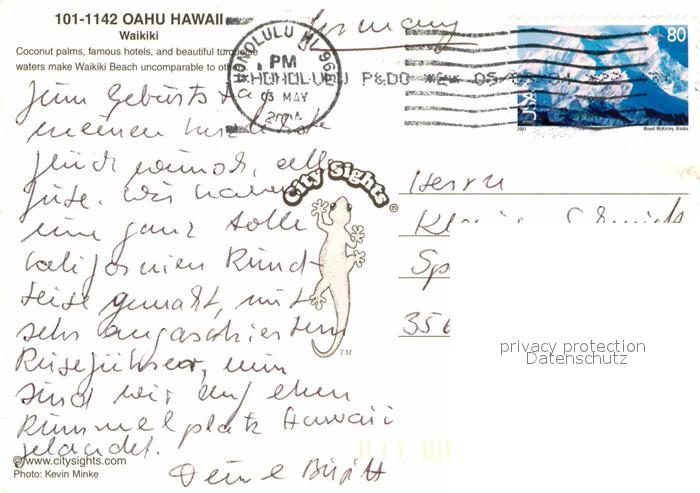 101-1142 OAHU HAWAII
Waikiki
Coconut palms, famous hotels, and beautiful turquoise
waters make Waikiki Beach uncomparable to
Germany
HONOLULU HI 968
PM
03 MAY
HONOLULU P&DC
80
USA
2001
Mount McKinley, Alaska
Zum Geburtstag
meinen herzlichste
Glückwunsch, alles
Gute. Wir haben
eine ganz tolle
Kalifornien Rund-
reise gemacht, mit
sehr angaschiertem
Reiseführer, nun
sind wir auf einen
Rummelplatz Hawaii
gelandet.
Deine Birgitt
City Sights
©
TM
Herrn
Sp
356
privacy protection
Datenschutz
© www.citysights.com
Photo: Kevin Minke